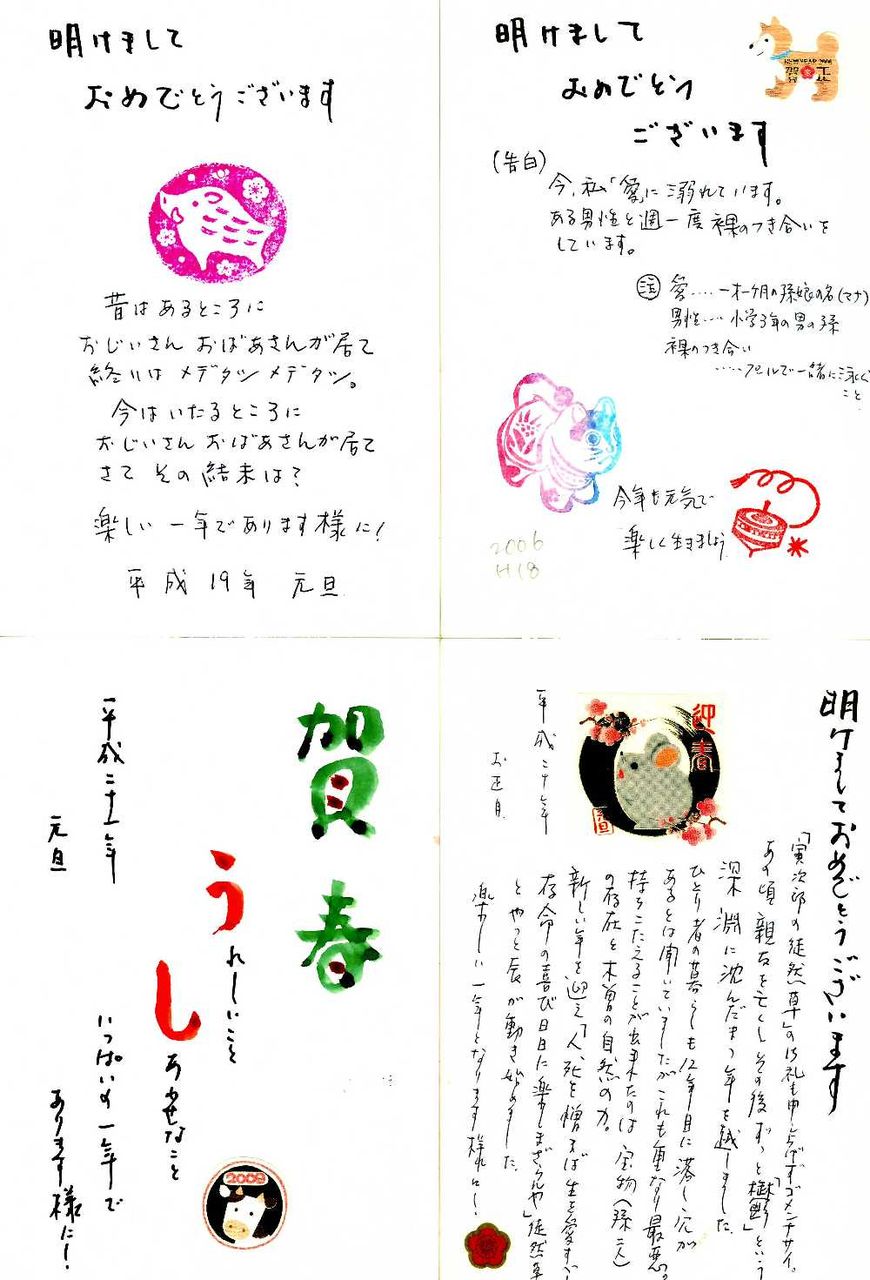 明けまして
おめでとうございます
昔はあるところに
おじいさん おばあさんが居て
終りは メデタシ メデタシ。
今はいたるところに
おじいさん おばあさんが居て
さて その結末は?
楽しい 一年であります様に!
平成 19年 元旦
明けまして
おめでとう
ございます
賀正
(告白)
今、私「愛」に溺れています。
ある男性と週一度 裸のつき合いを
しています。
注 愛‥‥一才一ヶ月の孫娘の名(マナ)
男性‥‥小学3年の男の孫
裸のつき合い
‥‥‥プールで一緒に泳ぐ
こと
今年も元気で
楽しく生きましょう
2006
H18
賀春
うれしいこと
しあわせなこと
いっぱいの一年で
あります様に!
平成二十一年
元旦
2009
明けましておめでとうございます
「寅次郎の徒然草」のお礼も申し上げずゴメンナサイ。
あの頃親友を亡くしその後ずっと「鬱」という
深淵に沈んだまゝ年を越しました。
ひとり者の暮らしも12年目に落し穴が
あるとは聞いていましたがこれも重なり最悪。
持ちこたえることが出来たのは 宝物(孫二人)
の存在と木曽の自然の力。
新しい年を迎え「人、死を憎まば生を愛すべし
存命の喜び日日に楽しまざらんや」徒然草
とやっと辰が動き始めました。
楽しい一年となります様に!
平成二十年
お正月
迎春
元旦